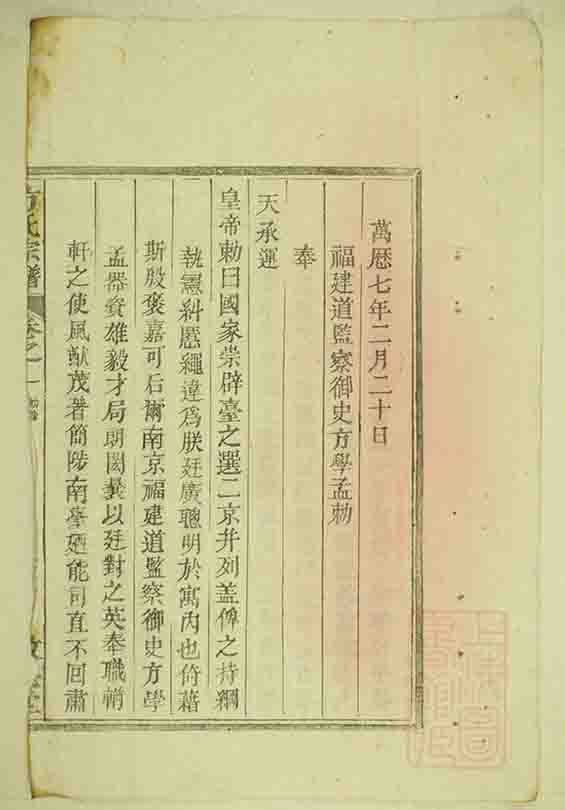 萬曆七年二月二十日
福建道監察御史方學孟勅
奉
天承運
皇帝勅曰國家崇辟臺之選二京并列盖俾之持綱
執憲糾慝繩違爲朕廷廣聰明於寓内也倚藉
斯殷褒嘉可后爾南京福建道監察御史方學
孟器資雄毅才局朗閎曩以廷對之英奉職輶
軒之使風猷茂著簡陟南臺廼能同直不回肅
方氏宗譜
卷之一